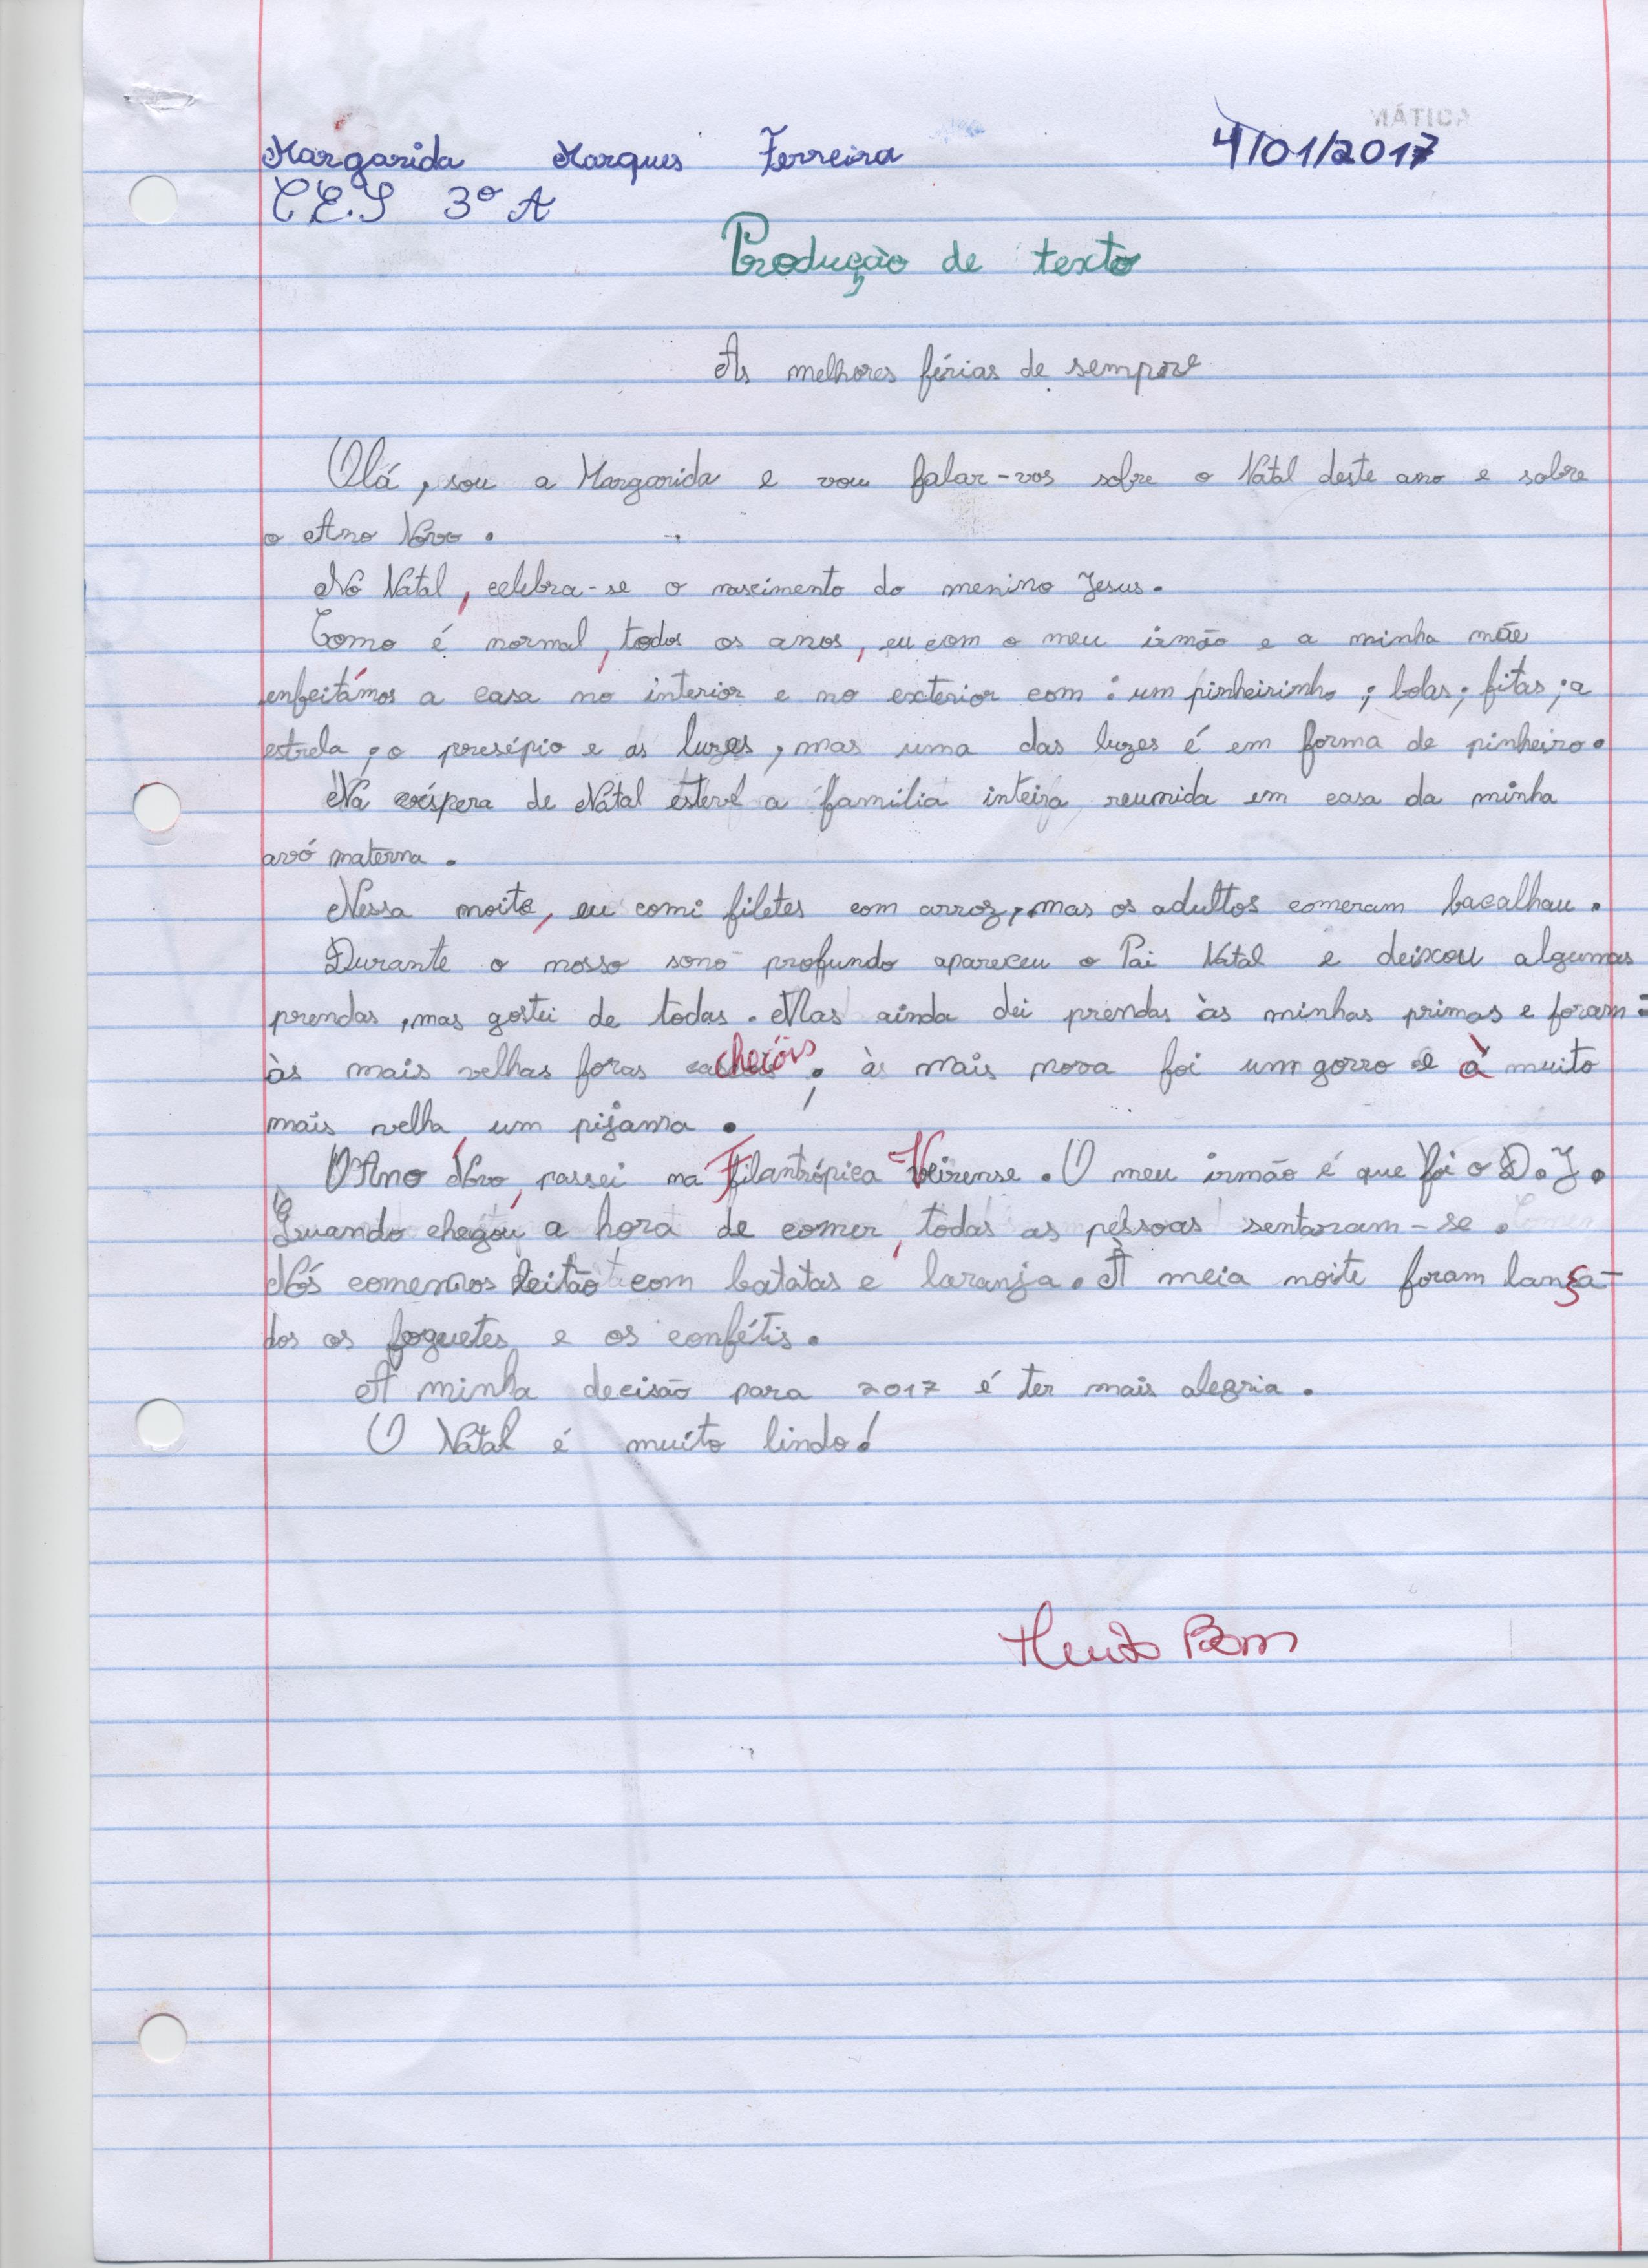 MÁTICA
Margarida Marques Ferreira 4/01/2017
C.E.S 3º A
Produção de texto
As melhores férias de sempre
Olá, sou a Margarida e vou falar-vos sobre o Natal deste ano e sobre
o Ano Novo.
No Natal, celebra-se o nascimento do menino Jesus.
Como é normal, todos os anos, eu com o meu irmão e a minha mãe
enfeitámos a casa no interior e no exterior com: um pinheirinho; bolas; fitas; a
estrela; o presépio e as luzes, mas uma das luzes é em forma de pinheiro.
Na véspera de Natal esteve a família inteira reunida em casa da minha
avó materna.
Nessa noite, eu comi filetes com arroz, mas os adultos comeram bacalhau.
Durante o nosso sono profundo apareceu o Pai Natal e deixou algumas
prendas, mas gostei de todas. Mas ainda dei prendas às minhas primas e foram:
às mais velhas foras cachecóis; à mais nova foi um gorro e à muito
mais velha, um pijama.
O Ano Novo, passei na Filantrópica Veirense. O meu irmão é que foi o D.J.
Quando chegou a hora de comer, todas as pessoas sentaram-se.
Nós comemos leitão com batatas e laranja. À meia noite foram lança-
dos os foguetes e os confétis.
A minha decisão para 2017 é ter mais alegria.
O Natal é muito lindo!
Muito Bom